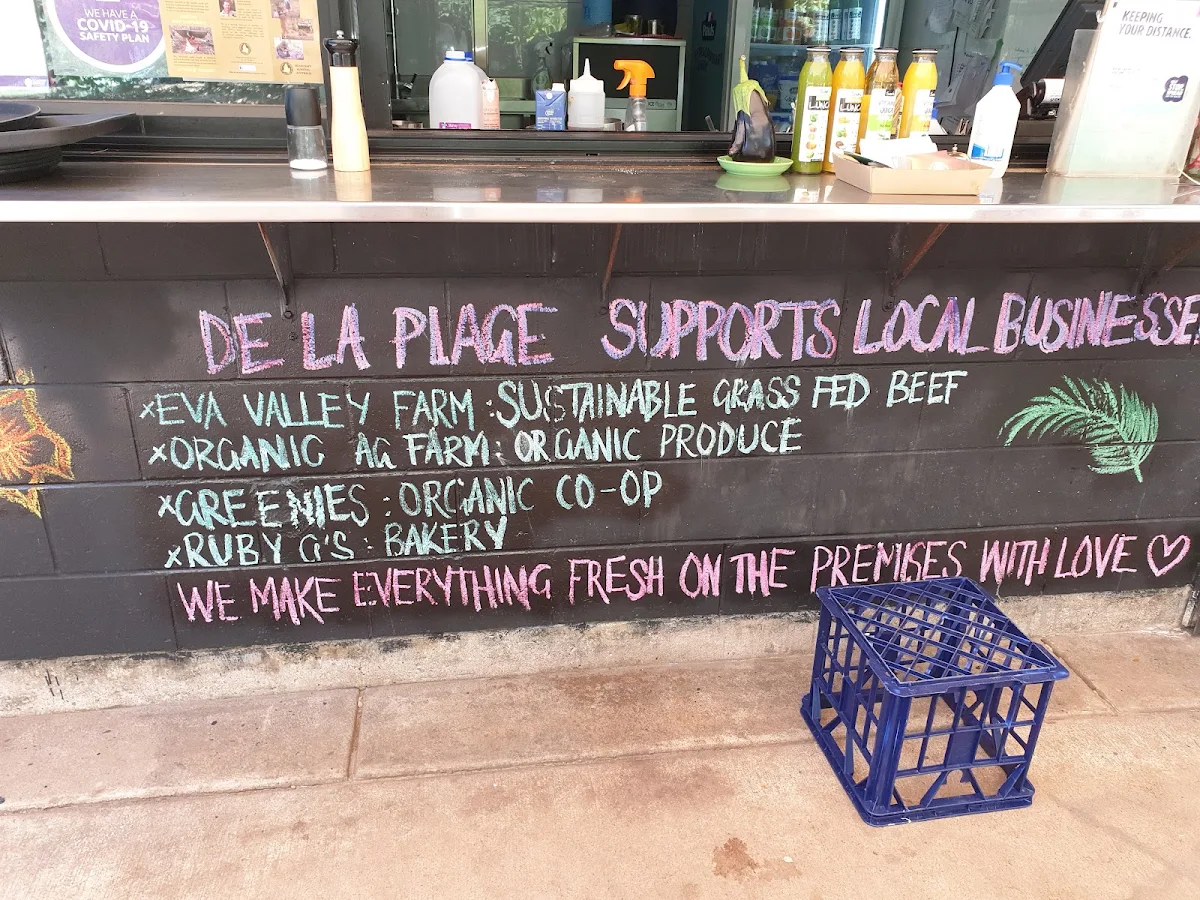 WE HAVE A
COVID-19
SAFETY PLAN
KEEPING
YOUR DISTANCE.
DE LA PLAGE SUPPORTS LOCAL BUSINESSES
×EVA VALLEY FARM : SUSTAINABLE GRASS FED BEEF
×ORGANIC AG FARM : ORGANIC PRODUCE
×GREENIES : ORGANIC CO-OP
×RUBY G'S : BAKERY
WE MAKE EVERYTHING FRESH ON THE PREMISES WITH LOVE ♡